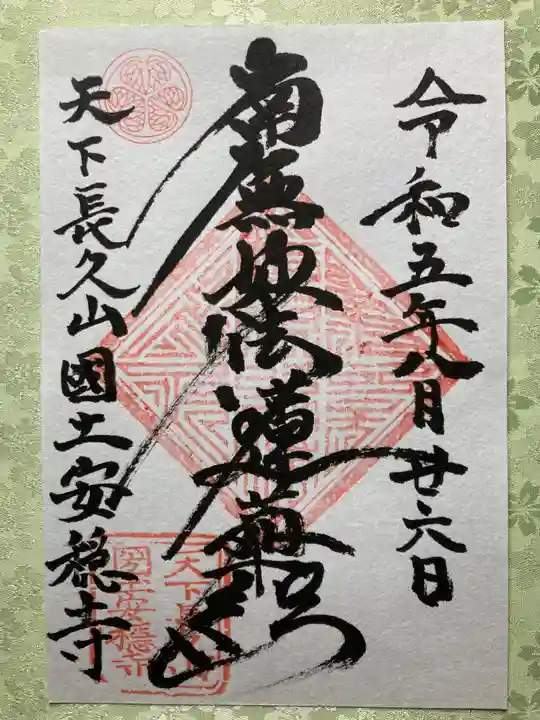 令和五年八月廿六日
南無妙法蓮華経
天下長久山國土安穏寺
天下長久山
國土安穏寺